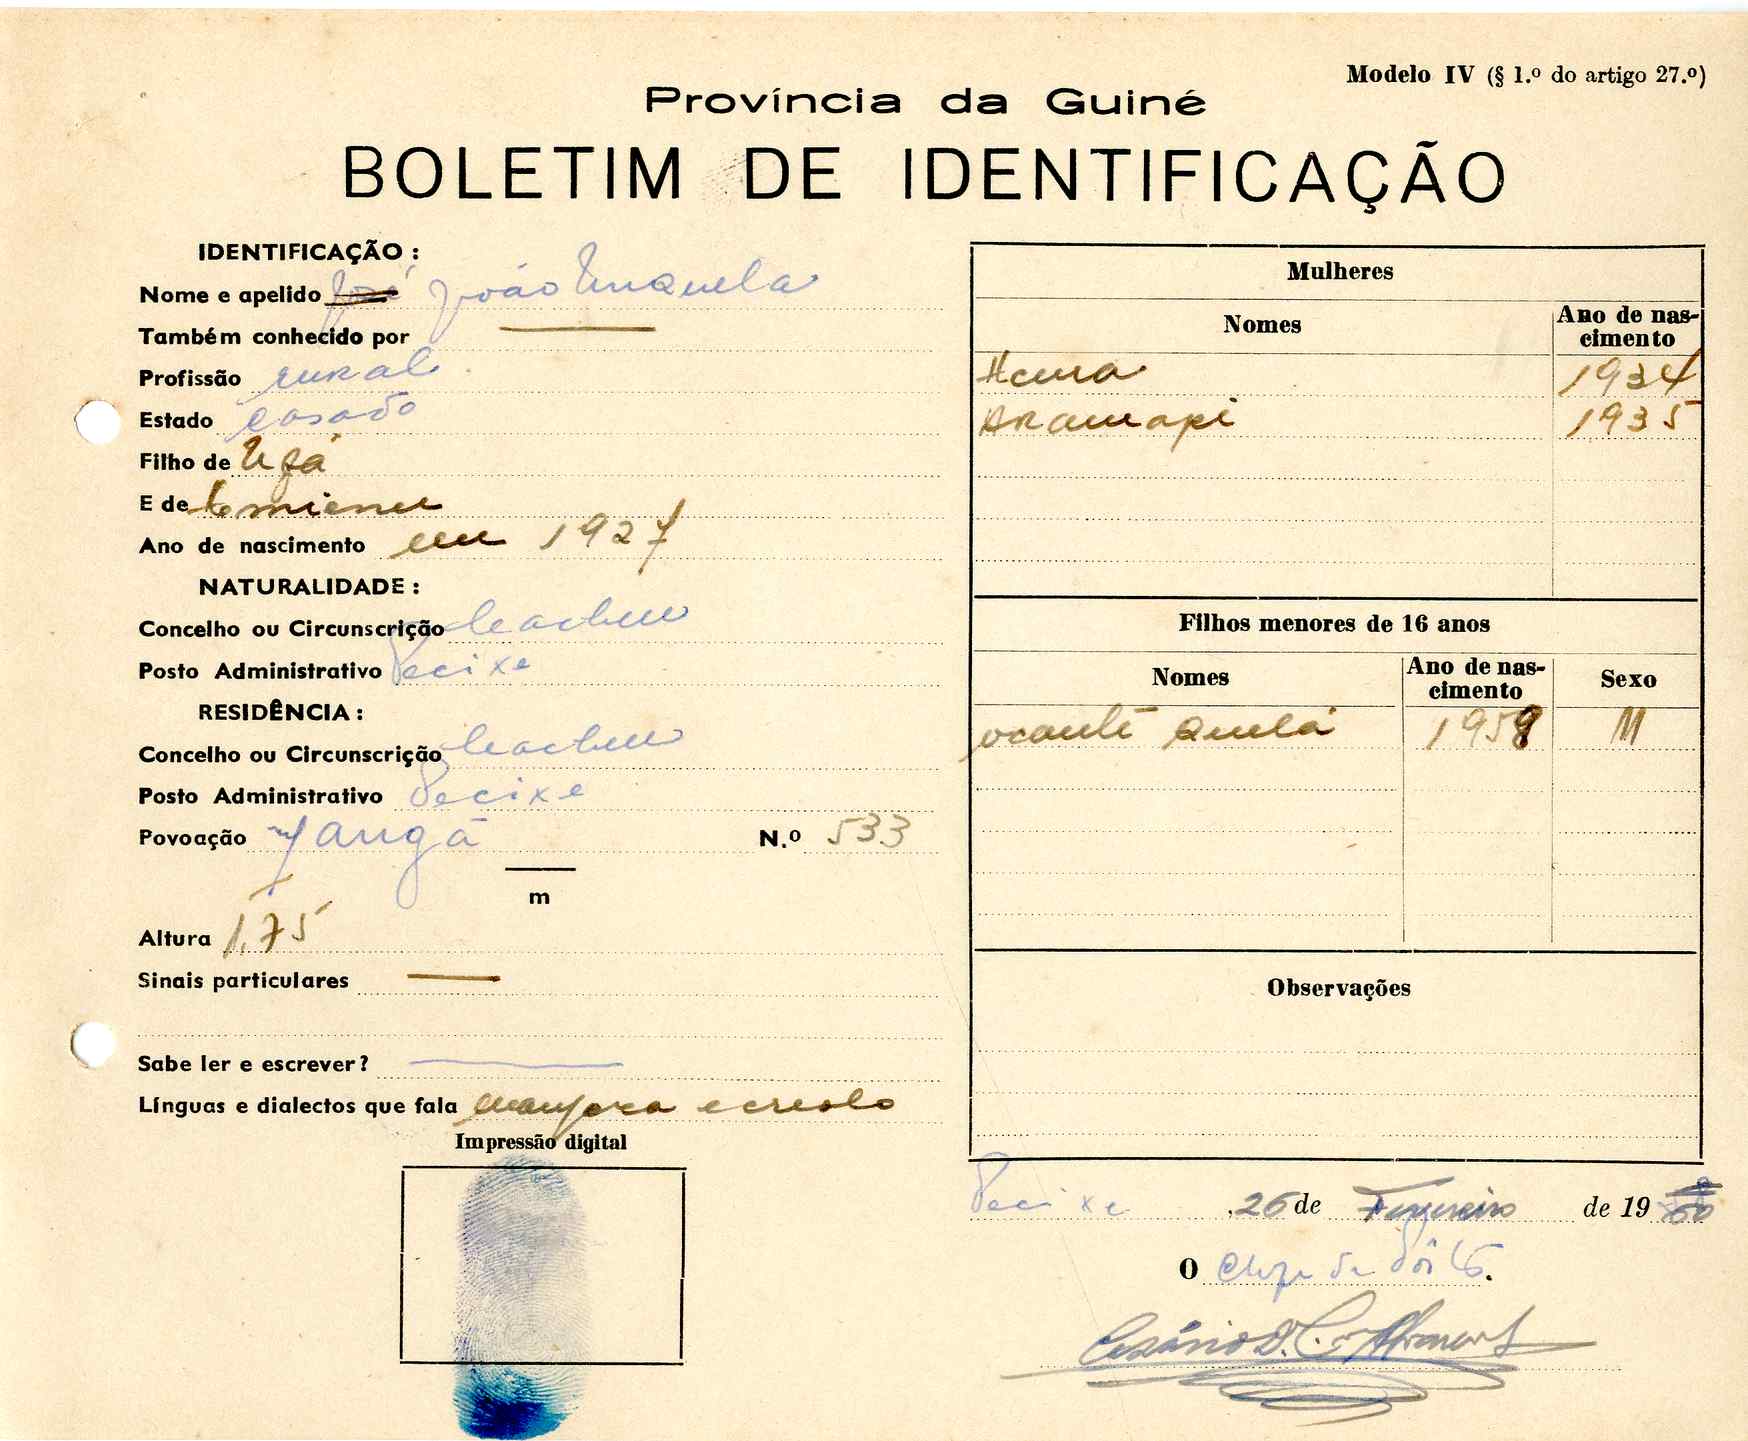 Modelo IV (§ 1.º do artigo 27.º)
Província da Guiné
BOLETIM DE IDENTIFICAÇÃO
IDENTIFICAÇÃO :
Nome e apelido José João
Também conhecido por
Profissão rural
Estado casado
Filho de
E de
Ano de nascimento em 1927
NATURALIDADE :
Concelho ou Circunscrição Cacheu
Posto Administrativo Pecixe
RESIDÊNCIA :
Concelho ou Circunscrição Cacheu
Posto Administrativo Pecixe
Povoação N.º 533
m
Altura 1,75
Sinais particulares
Sabe ler e escrever?
Línguas e dialectos que fala e creolo
Impressão digital
Mulheres
Nomes Ano de nas-
cimento
1934
1935
Filhos menores de 16 anos
Nomes Ano de nas-
cimento Sexo
M
Observações
Pecixe, 26 de Fevereiro de 1960
O Chefe de Pôsto.